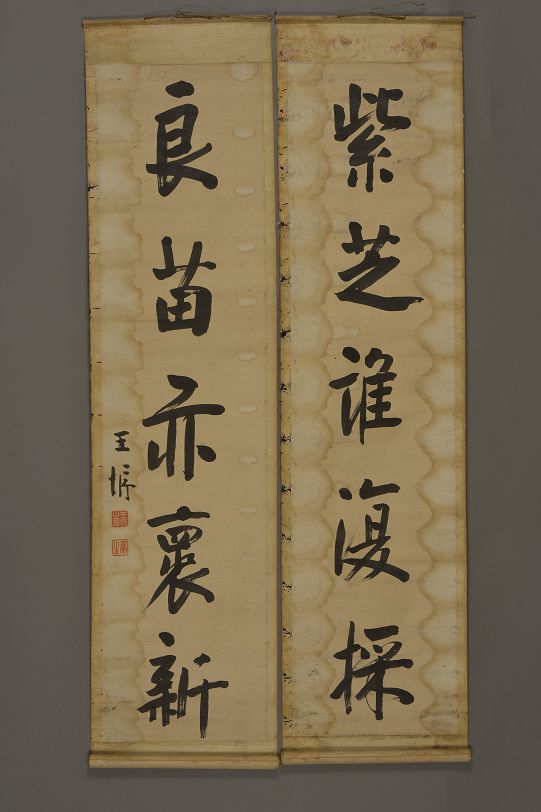 紫芝誰復採
良苗亦褱新
王